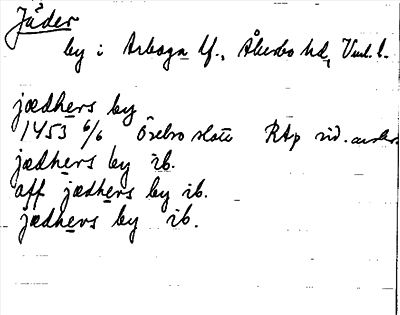 Jäder
by i Arboga lf., Åkerbo hd, Vml. l.
jædhers by
1453 6/6 Örebro slott RAp vid. avskr.
jædhers by ib.
aff jædhers by ib.
jædhers by ib.